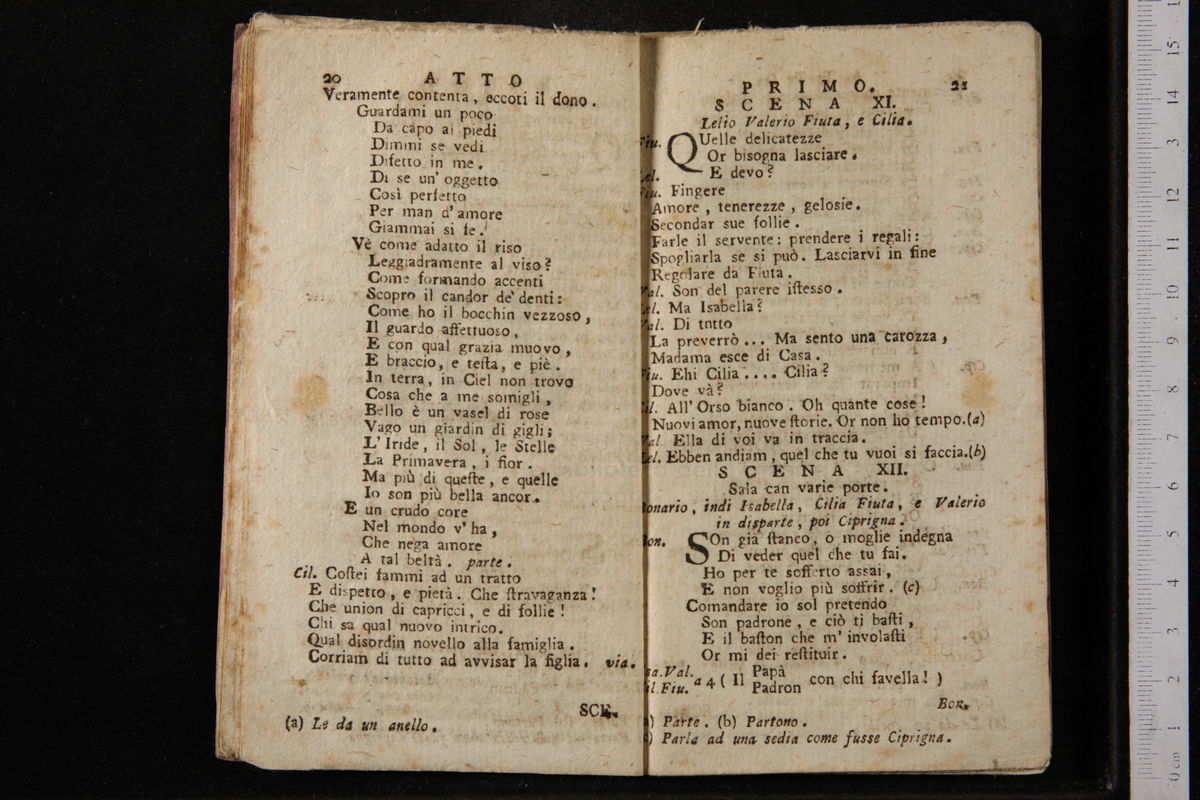 20 ATTO
Veramente contenta, eccoti il dono.
Guardami un poco
Da capo ai piedi
Dimmi se vedi
Difetto in me.
Di se un' oggetto
Così perfetto
Per man d'amore
Giammai si fe.
Vè come adatto il riso
Leggiadramente al viso?
Come formando accenti
Scopro il candor de' denti:
Come ho il bocchin vezzoso,
Il guardo affettuoso,
E con qual grazia muovo,
E braccio, e testa, e piè.
In terra, in Ciel non trovo
Cosa che a me somigli,
Bello è un vasel di rose
Vago un giardin di gigli;
L'Iride, il Sol, le Stelle
La Primavera, i fior.
Ma più di queste, e quelle
Io son più bella ancor.
E un crudo core
Nel mondo v'ha,
Che nega amore
A tal beltà. parte.
Cil. Costei fammi ad un tratto
E dispetto, e pietà. Che stravaganza!
Che union di capricci, e di follie!
Chi sa qual nuovo intrico.
Qual disordin novello alla famiglia.
Corriam di tutto ad avvisar la figlia. via.
SCE.
(a) Le da un anello.
PRIMO. 21
SCENA XI.
Lelio Valerio Fiuta, e Cilia.
Fiu. QUelle delicatezze
Or bisogna lasciare.
Lel. E devo?
Fiu. Fingere
Amore, tenerezze, gelosie.
Secondar sue follie.
Farle il servente: prendere i regali:
Spogliarla se si può. Lasciarvi in fine
Regolare da Fiuta.
Val. Son del parere istesso.
Lel. Ma Isabella?
Val. Di tntto
La preverrò... Ma sento una carozza,
Madama esce di Casa.
Fiu. Ehi Cilia.... Cilia?
Dove và?
Cil. All' Orso bianco. Oh quante cose!
Nuovi amor, nuove storie. Or non ho tempo.(a)
Val Ella di voi va in traccia.
Lel. Ebben andiam, quel che tu vuoi si faccia.(b)
SCENA XII.
Sala can varie porte.
Bonario, indi Isabella, Cilia Fiuta, e Valerio
in disparte, poi Ciprigna.
Bon. SOn già stanco, o moglie indegna
Di veder quel che tu fai.
Ho per te sofferto assai,
E non voglio più soffrir. (c)
Comandare io sol pretendo
Son padrone, e ciò ti basti,
E il baston che m'involasti
Or mi dei restituir.
sa. Val. Papà
a 4 ( Il con chi favella! )
il. Fiu. Padron
Bon.
Parte. (b) Partono.
Parla ad una sedia come fusse Ciprigna.